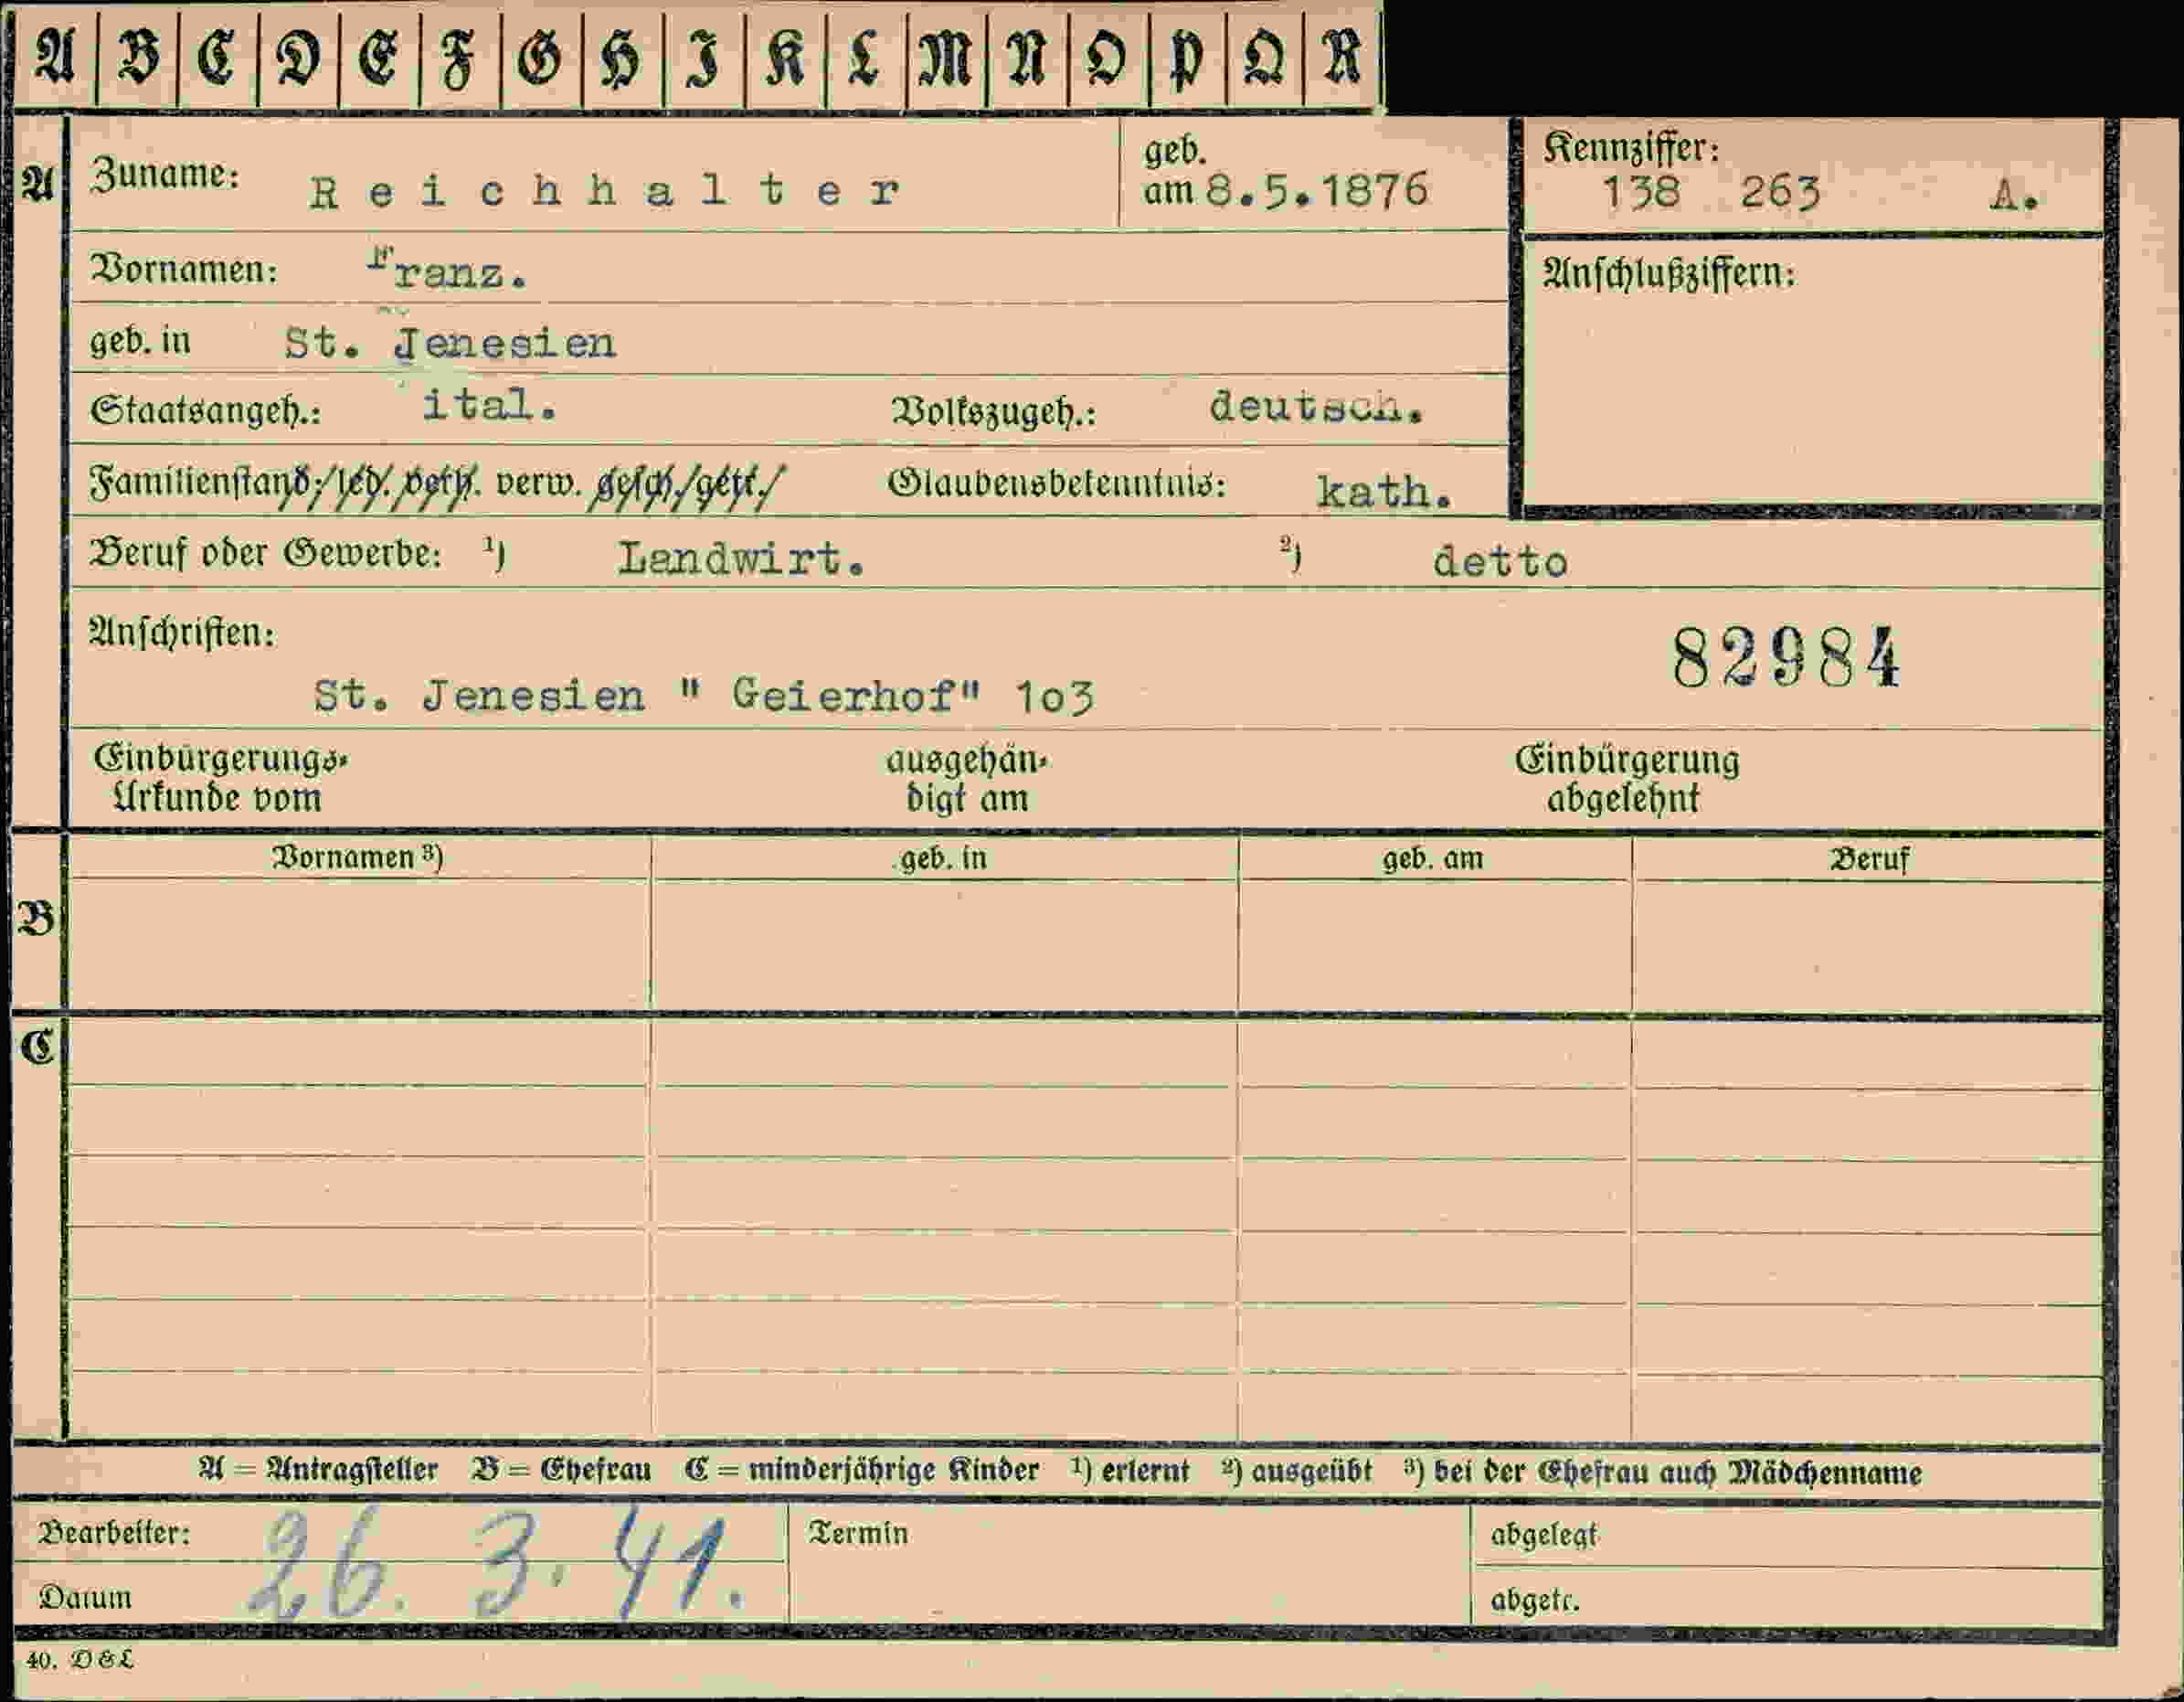 A B C D E F G H I K L M N O P Q R
A Zuname: Reichhalter geb. am 8.5.1876 Kennziffer: 138 263 A.
Vornamen: Franz. Anschlußziffern:
geb. in St. Jenesien
Staatsangeh.: ital. Volkszugeh.: deutsch.
Familienstand: led. verh. verw. gesch. getr. Glaubensbekenntnis: kath.
Beruf oder Gewerbe: ¹) Landwirt. ²) detto
Anschriften: 82984
St. Jenesien " Geierhof" 1o3
Einbürgerungs- ausgehän- Einbürgerung
Urkunde vom digt am abgelehnt
Vornamen ³) geb. in geb. am Beruf
B
C
A = Antragsteller B = Ehefrau C = minderjährige Kinder ¹) erlernt ²) ausgeübt ³) bei der Ehefrau auch Mädchenname
Bearbeiter: Termin abgelegt
Datum 26. 3. 41. abgetr.
40. D&L